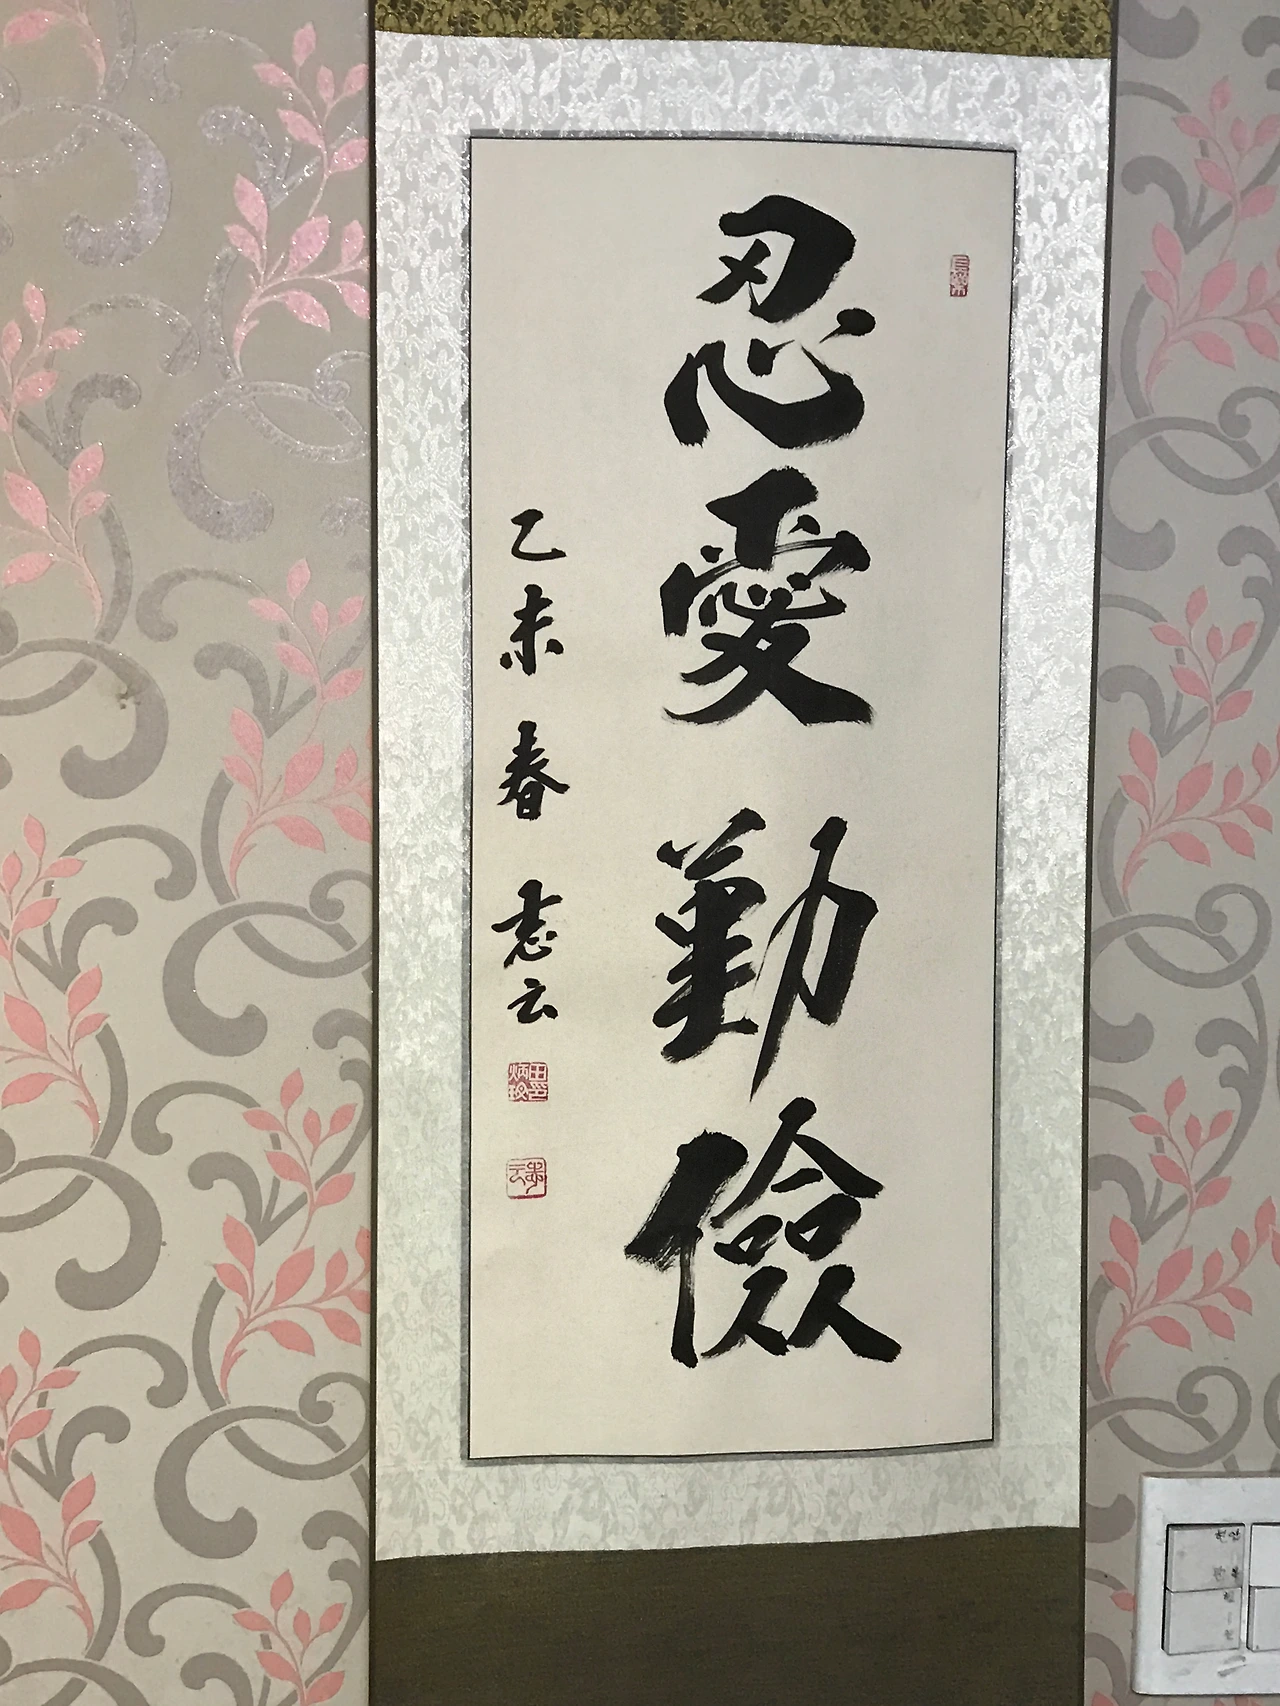 忍愛勤儉
乙未 春 志云
田印
炳玟
志云